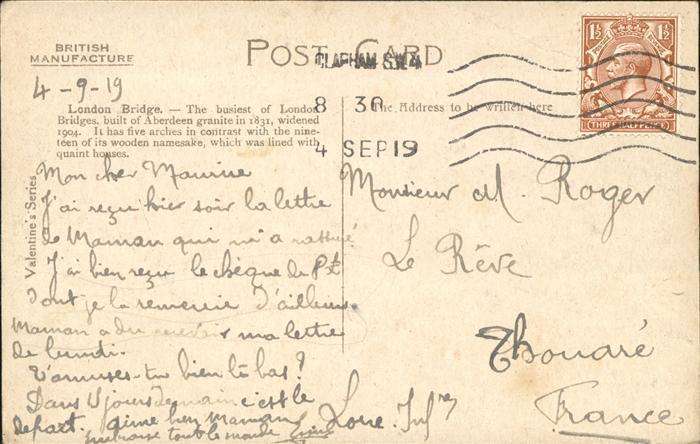 BRITISH
MANUFACTURE
POST CARD
CLAPHAM S.W.4
8 30
4 SEP 19
1½ 1½
THREE HALF PENCE
4-9-19
London Bridge. — The busiest of London
Bridges, built of Aberdeen granite in 1831, widened
1904. It has five arches in contrast with the nine-
teen of its wooden namesake, which was lined with
quaint houses.
The Address to be written here
Valentine's Series
Mon cher Maurice
J'ai reçu hier soir la lettre
de Maman qui m'a
J'ai bien reçu le chèque de
dont je la remercie d'ailleurs.
Maman a du recevoir ma lettre
de lundi.
T'amuses-tu bien là bas?
Dans 15 jours demain c'est le
départ. aime bien maman
embrasse tout le monde
Monsieur M. Roger
Le Rêve
Thouaré
Loire Infre
France